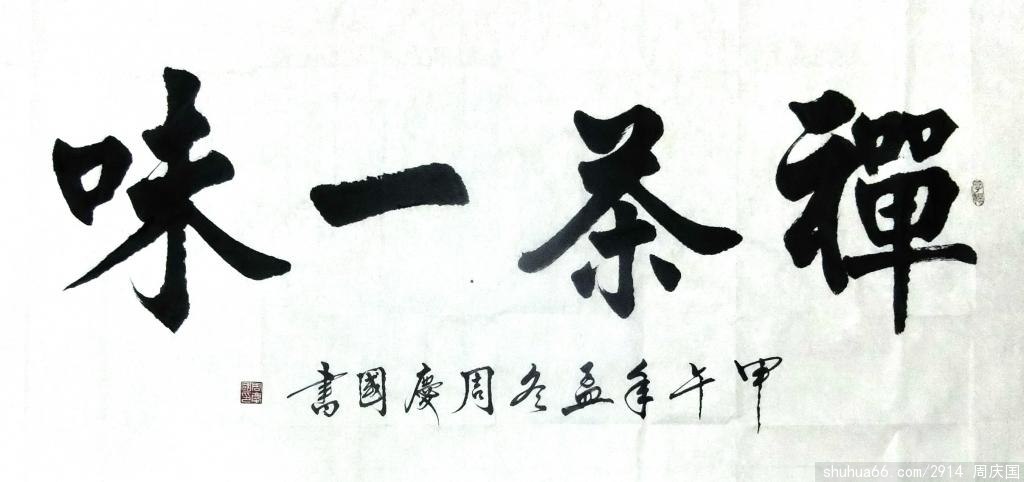 禪茶一味
甲午年孟冬周慶國書
shuhua66.com/2914 周庆国